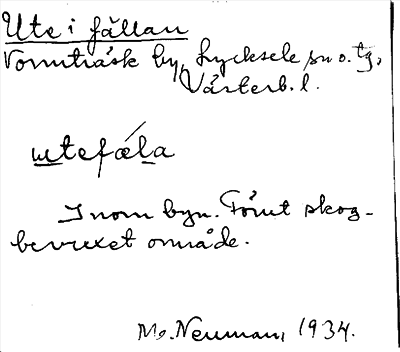 Ute i fällan
Vormträsk by, Lycksele sn o. tg,
Västerb. l.
utefæla
Inom byn. Förut skog-
bevuxet område.
Mg. Neuman, 1934.